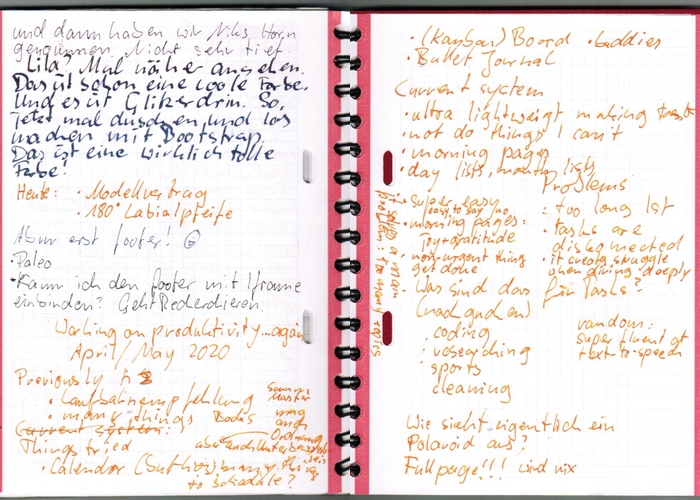 und dann haben wir Niks Horn
genommen. Nicht sehr tief.
Lila? Mal näher ansehen.
Das ist schon eine coole Farbe.
Und es ist Glitzer drin. So,
jetzt mal duschen und los
machen mit Bootstrap.
Das ist eine wirklich tolle
Farbe!
Heute: • Modellvertrag
• 180° Labialpfeife
Aber erst footer! ☺
• Paleo
• Kann ich den footer mit Iframe
einbinden? Geht
Working on produktivity... again
April/May 2020
Previously
• Laufbahnempfehlung
• many things
Current system:
Things tried
• Calendar many things
to schedule?
• (Kanban) Board • buddies
• Bullet Journal
Current system
• ultra lightweigt making tasks
• not do things I can't
• morning pages
• day lists, monthy lists
Problems
• super easy
easy to say no
• morning pages:
joy + gratitude
• non-urgent things
get done
: too long list
• tasks are
disconnected
• it creats struggle
when diving deeply
problem: too many topics
Was sind das für Tasks?
(nachgucken)
• coding
• researching
• sports
• cleaning
random:
super fluent at
text-to-speech
Wie sieht eigentlich ein
Polaroid aus?
Full page!!! wird nix